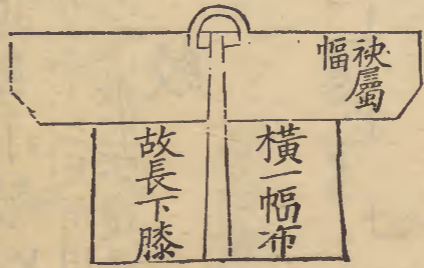 袂屬
幅
橫一幅布
故長下膝